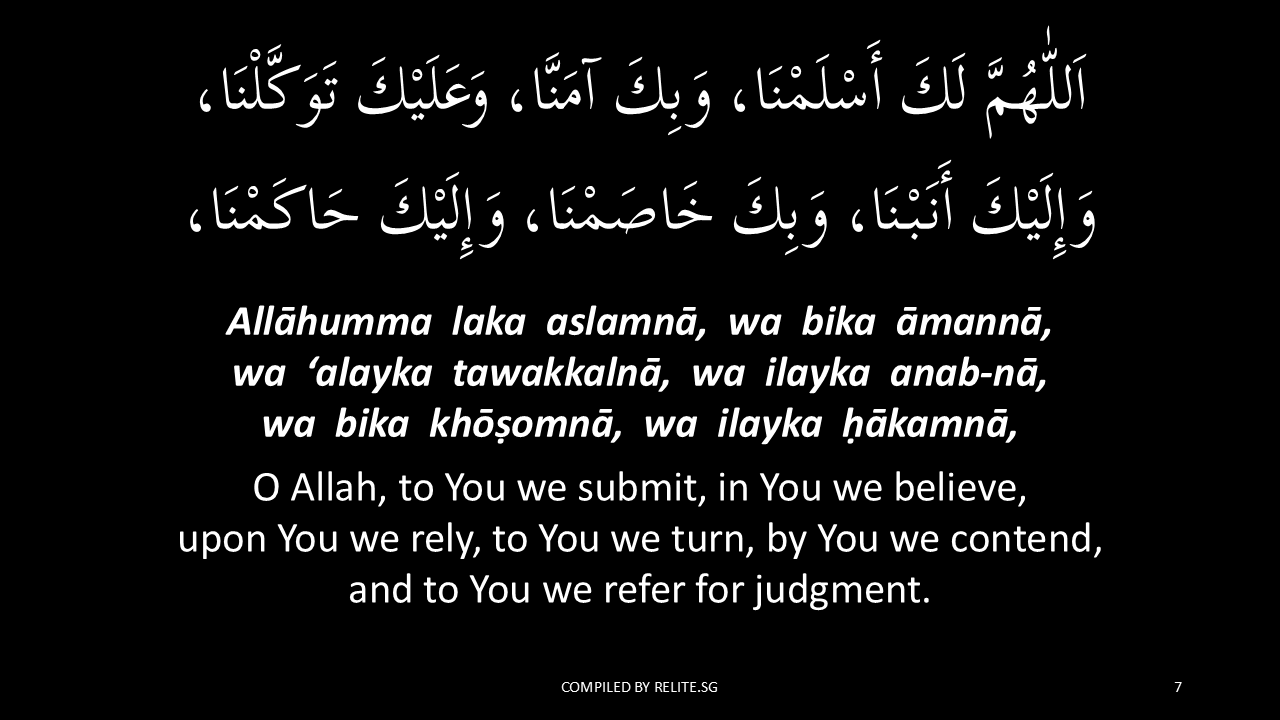 اَللّٰهُمَّ لَكَ أَسْلَمْنَا، وَبِكَ آمَنَّا، وَعَلَيْكَ تَوَكَّلْنَا،
وَإِلَيْكَ أَنَبْنَا، وَبِكَ خَاصَمْنَا، وَإِلَيْكَ حَاكَمْنَا،
Allāhumma laka aslamnā, wa bika āmannā,
wa ‘alayka tawakkalnā, wa ilayka anab-nā,
wa bika khōṣomnā, wa ilayka ḥākamnā,
O Allah, to You we submit, in You we believe,
upon You we rely, to You we turn, by You we contend,
and to You we refer for judgment.
COMPILED BY RELITE.SG
7